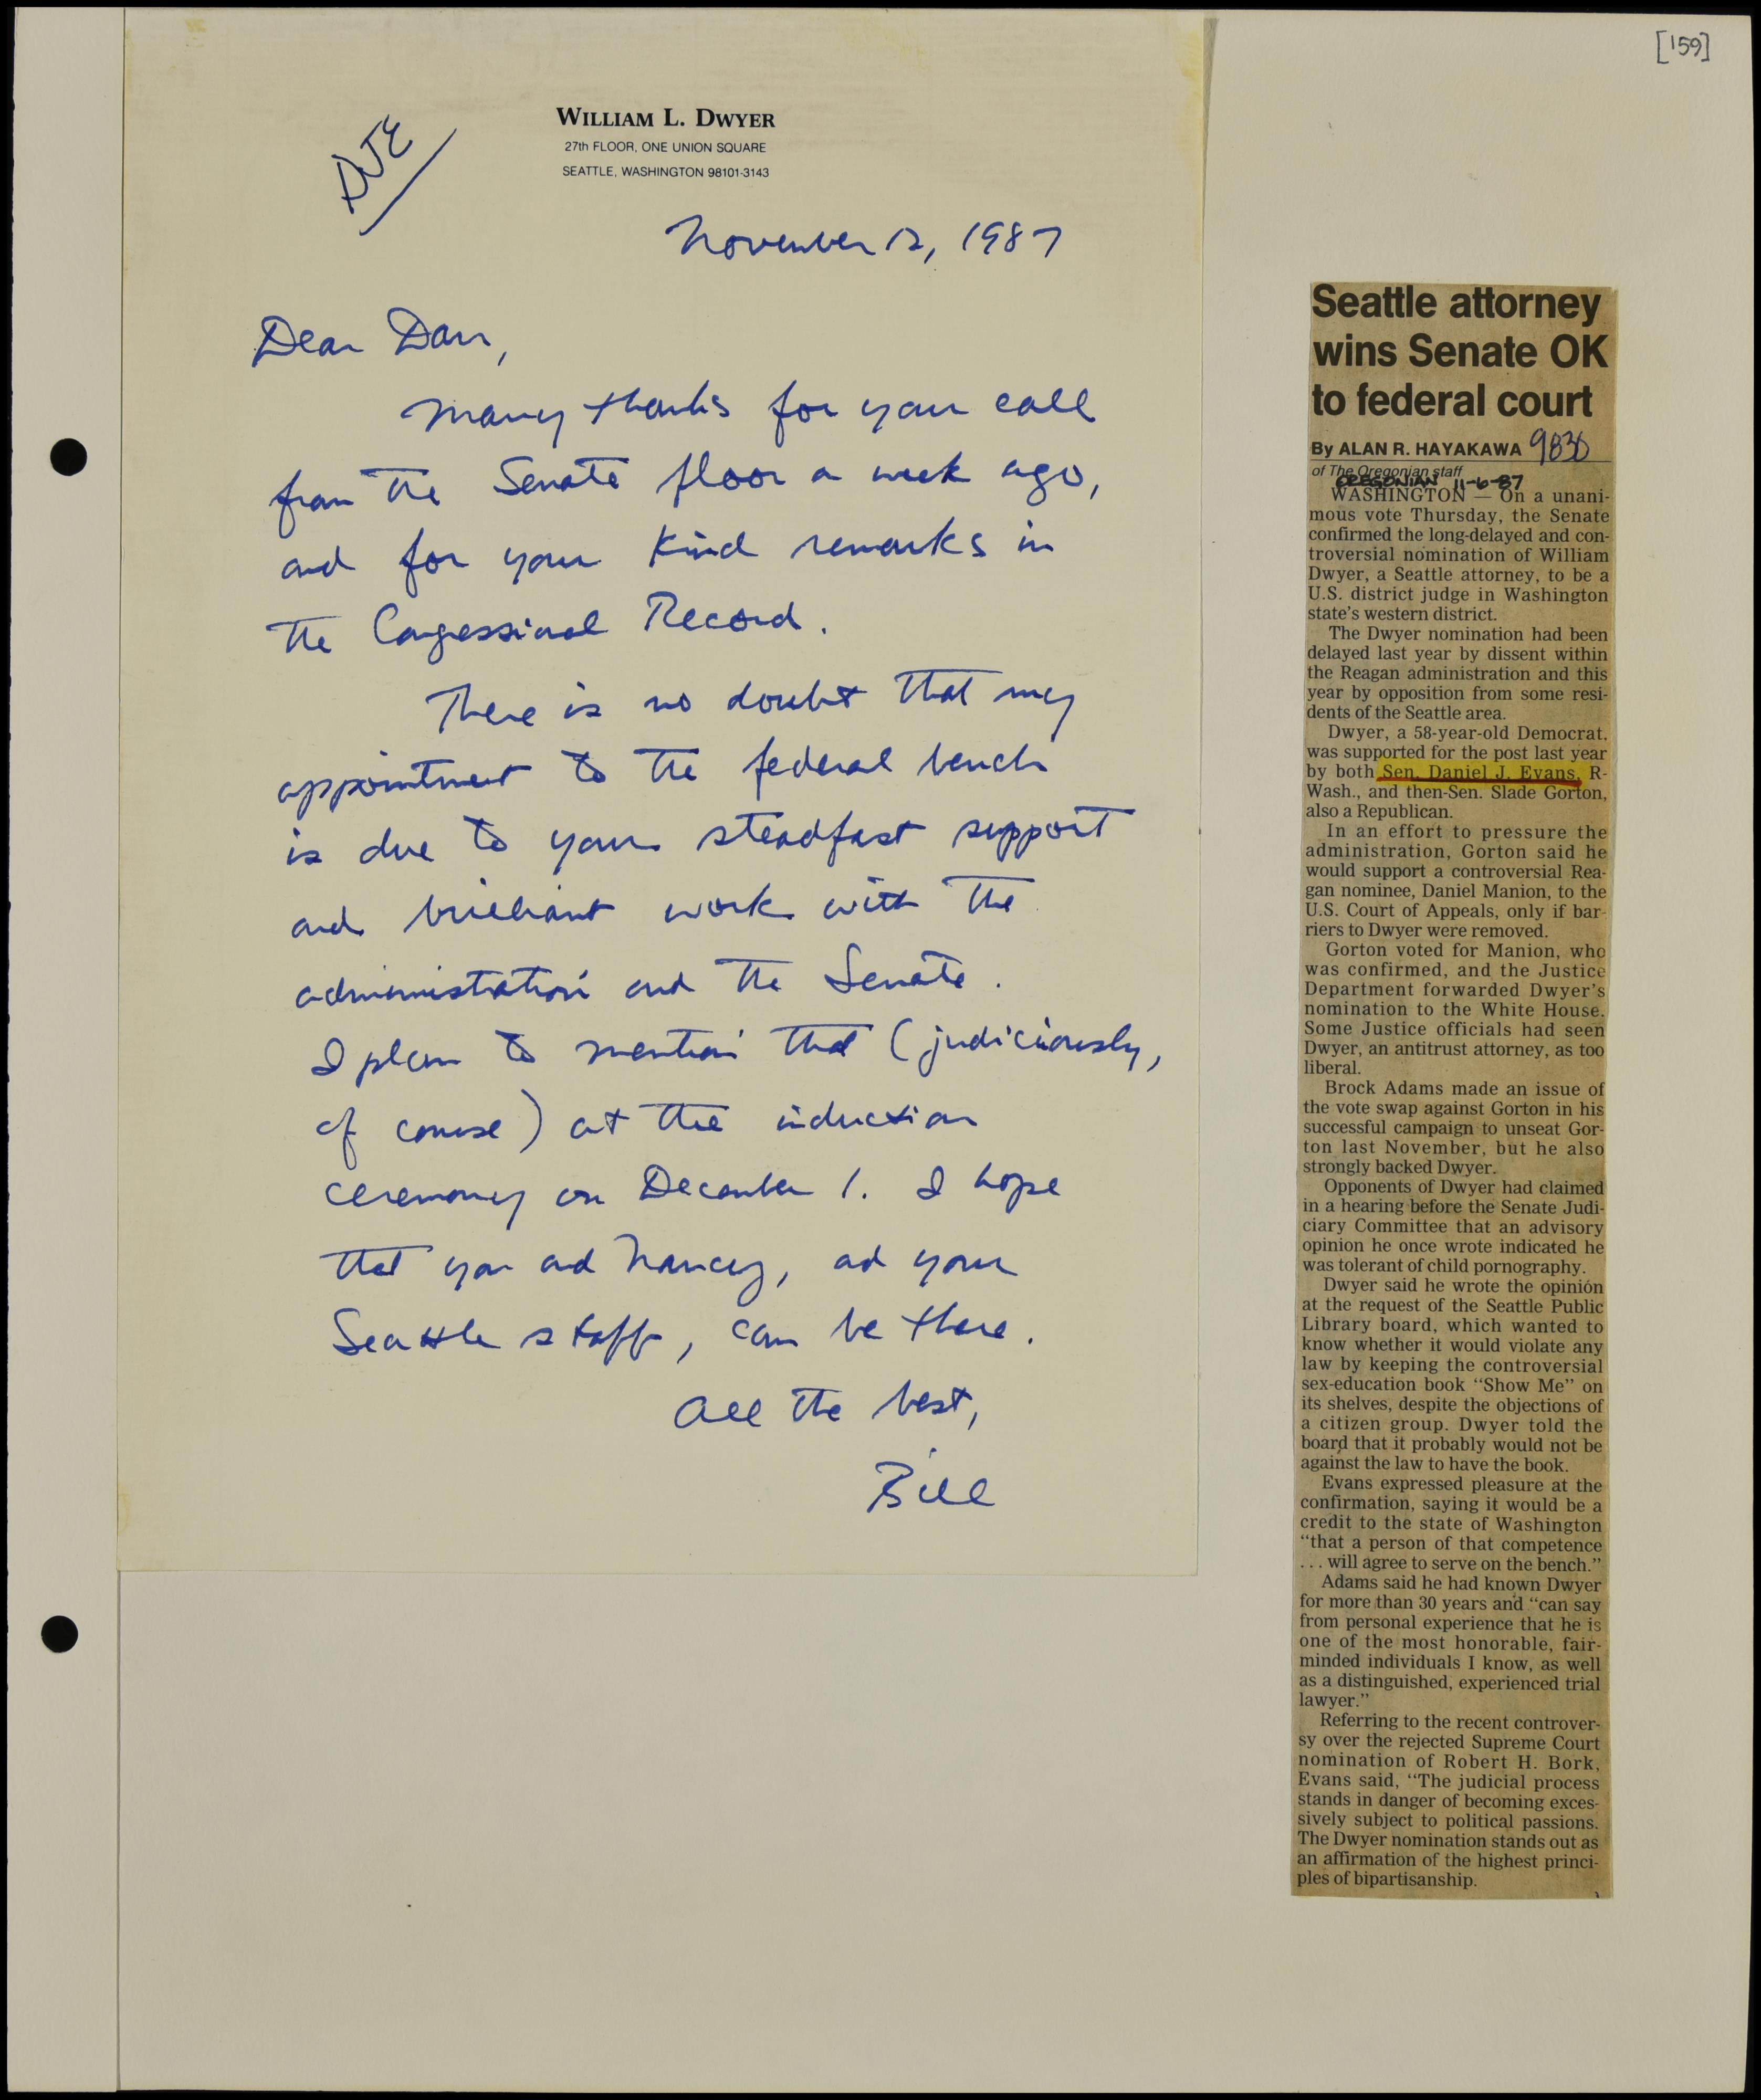 [159]
DJE
WILLIAM L. DWYER
27th FLOOR, ONE UNION SQUARE
SEATTLE, WASHINGTON 98101-3143
November 12, 1987
Dear Dan,
Many thanks for your call
from the Senate floor a week ago,
and for your kind remarks in
the Congressional Record.
There is no doubt that my
appointment to the federal bench
is due to your steadfast support
and brilliant work with the
administration and the Senate.
I plan to mention that (judiciously,
of course) at the induction
ceremony on December 1. I hope
that you and Nancy, and your
Seattle staff, can be there.
All the best,
Bill
Seattle attorney
wins Senate OK
to federal court
By ALAN R. HAYAKAWA 9830
of The Oregonian staff
OREGONIAN 11-6-87
WASHINGTON — On a unani-
mous vote Thursday, the Senate
confirmed the long-delayed and con-
troversial nomination of William
Dwyer, a Seattle attorney, to be a
U.S. district judge in Washington
state's western district.
The Dwyer nomination had been
delayed last year by dissent within
the Reagan administration and this
year by opposition from some resi-
dents of the Seattle area.
Dwyer, a 58-year-old Democrat,
was supported for the post last year
by both Sen. Daniel J. Evans, R-
Wash., and then-Sen. Slade Gorton,
also a Republican.
In an effort to pressure the
administration, Gorton said he
would support a controversial Rea-
gan nominee, Daniel Manion, to the
U.S. Court of Appeals, only if bar-
riers to Dwyer were removed.
Gorton voted for Manion, who
was confirmed, and the Justice
Department forwarded Dwyer's
nomination to the White House.
Some Justice officials had seen
Dwyer, an antitrust attorney, as too
liberal.
Brock Adams made an issue of
the vote swap against Gorton in his
successful campaign to unseat Gor-
ton last November, but he also
strongly backed Dwyer.
Opponents of Dwyer had claimed
in a hearing before the Senate Judi-
ciary Committee that an advisory
opinion he once wrote indicated he
was tolerant of child pornography.
Dwyer said he wrote the opinion
at the request of the Seattle Public
Library board, which wanted to
know whether it would violate any
law by keeping the controversial
sex-education book "Show Me" on
its shelves, despite the objections of
a citizen group. Dwyer told the
board that it probably would not be
against the law to have the book.
Evans expressed pleasure at the
confirmation, saying it would be a
credit to the state of Washington
"that a person of that competence
. . . will agree to serve on the bench."
Adams said he had known Dwyer
for more than 30 years and "can say
from personal experience that he is
one of the most honorable, fair-
minded individuals I know, as well
as a distinguished, experienced trial
lawyer."
Referring to the recent controver-
sy over the rejected Supreme Court
nomination of Robert H. Bork,
Evans said, "The judicial process
stands in danger of becoming exces-
sively subject to political passions.
The Dwyer nomination stands out as
an affirmation of the highest princi-
ples of bipartisanship.